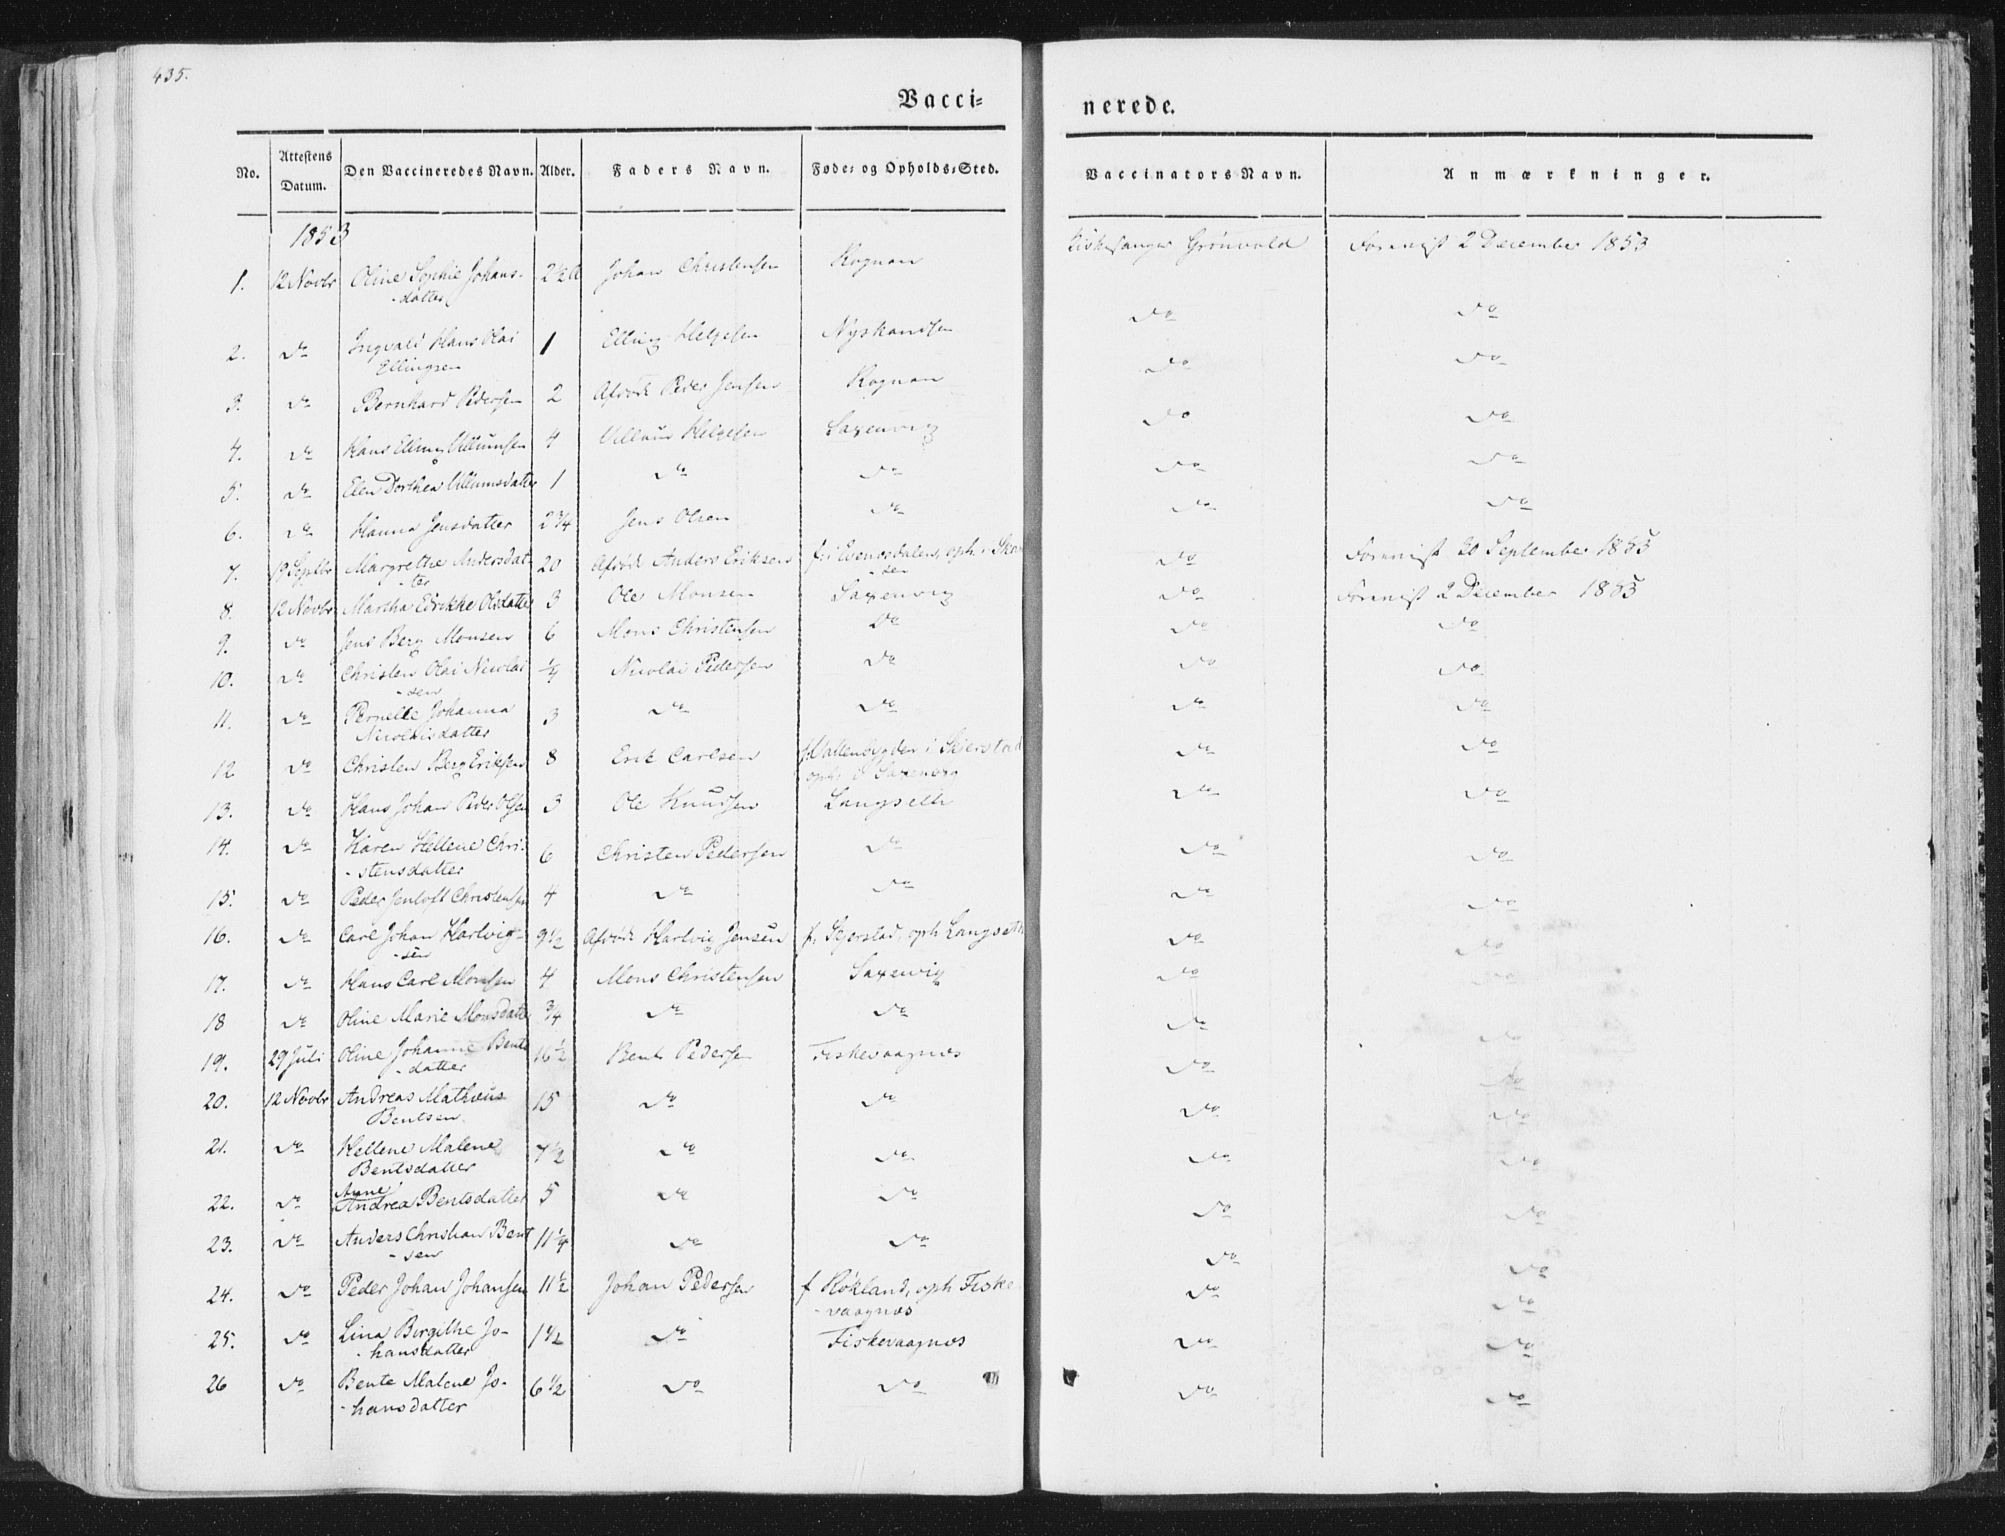 435.
Vacci= nerede.
No. Attestens Datum. Den Vaccineredes Navn. Alder. Faders Navn. Føde= og Opholds=Sted. Vaccinators Navn. Anmærkninger.
1853
1. 12 Novbr Oline Sophie Johans- 2½ Johan Christensen Rognan Kirkesanger Grönvold Foreviist 2 December 1853
-datter
2. do Ingvald Hans Olai 1 Elling Helgesen Nyskandsen do do
Ellingsen
3. do Bernhard Pedersen 2 Afdöde Peder Jensen Rognan do do
4. do Hans Elling Villumsen 4 Villum Helgesen Saxenvig do do
5. do Elen Dorthea Villumsdatter 1 do do do do
6. do Hanna Jensdatter 2¾ Jens Olsen do do do
7. 19 Septbr Margrethe Andersdat- 20 Afdöde Anders Eriksen f. i Evenesdalen, oph. i do Foreviist 20 September 1853
-ter
8. 12 Novbr Martha Edrikke Olsdatter 3 Ole Monsen Saxenvig do Foreviist 2 December 1853
9. do Jens Berg Monsen 6 Mons Christensen do do do
10. do Christen Olai Nicolai ¼ Nicolai Pedersen do do do
-sen
11. do Pernelle Johanna 3 do do do do
Nicolaisdatter
12 do Christen Berg Eriksen 8 Erik Carlsen f. Vattenbygden i Skjerstad do do
oph. i Saxenvig
13. do Hans Johan Peder Olsen 3 Ole Knudsen Langseth do do
14. do Karen Hellene Chri- 6 Christen Pedersen do do do
-stensdatter
15. do Peder Jentoft Christensen 4 do do do do
16. do Carl Johan Hartvig- 9½ Afdöde Hartvig Jensen f. Skjerstad, oph Langseth do do
-sen
17. do Hans Carl Monsen 4 Mons Christensen Saxenvig do do
18 do Oline Marie Monsdatter ¾ do do do do
19. 29 Juli Oline Johanne Bents 16½ Bent Pedersen Fiskevaagnæs do do
-datter
20. 12 Novbr Andreas Mathæus 15 do do do do
Bentsen
21. do Hellene Malene 7½ do do do do
Bentsdatter
22. do Anne 5 do do do do
Andrea Bentsdatter
23. do Anders Christian Bent 11¼ do do do do
-sen
24. do Peder Johan Johansen 11½ Johan Pedersen f Røkland, oph Fiske do do
-vaagnæs
25. do Lina Birgithe Jo- 1½ do Fiskevaagnæs do do
-hansdatter
26 do Bente Malene Jo- 6½ do do do do
-hansdatter